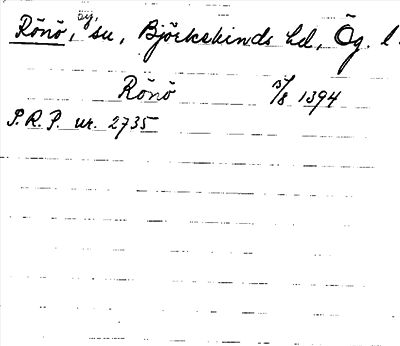 Rönö, ög, su, Björkekinds hd, Ög. l.
Rönö 5/8 1394
P.R.P. nr. 2735